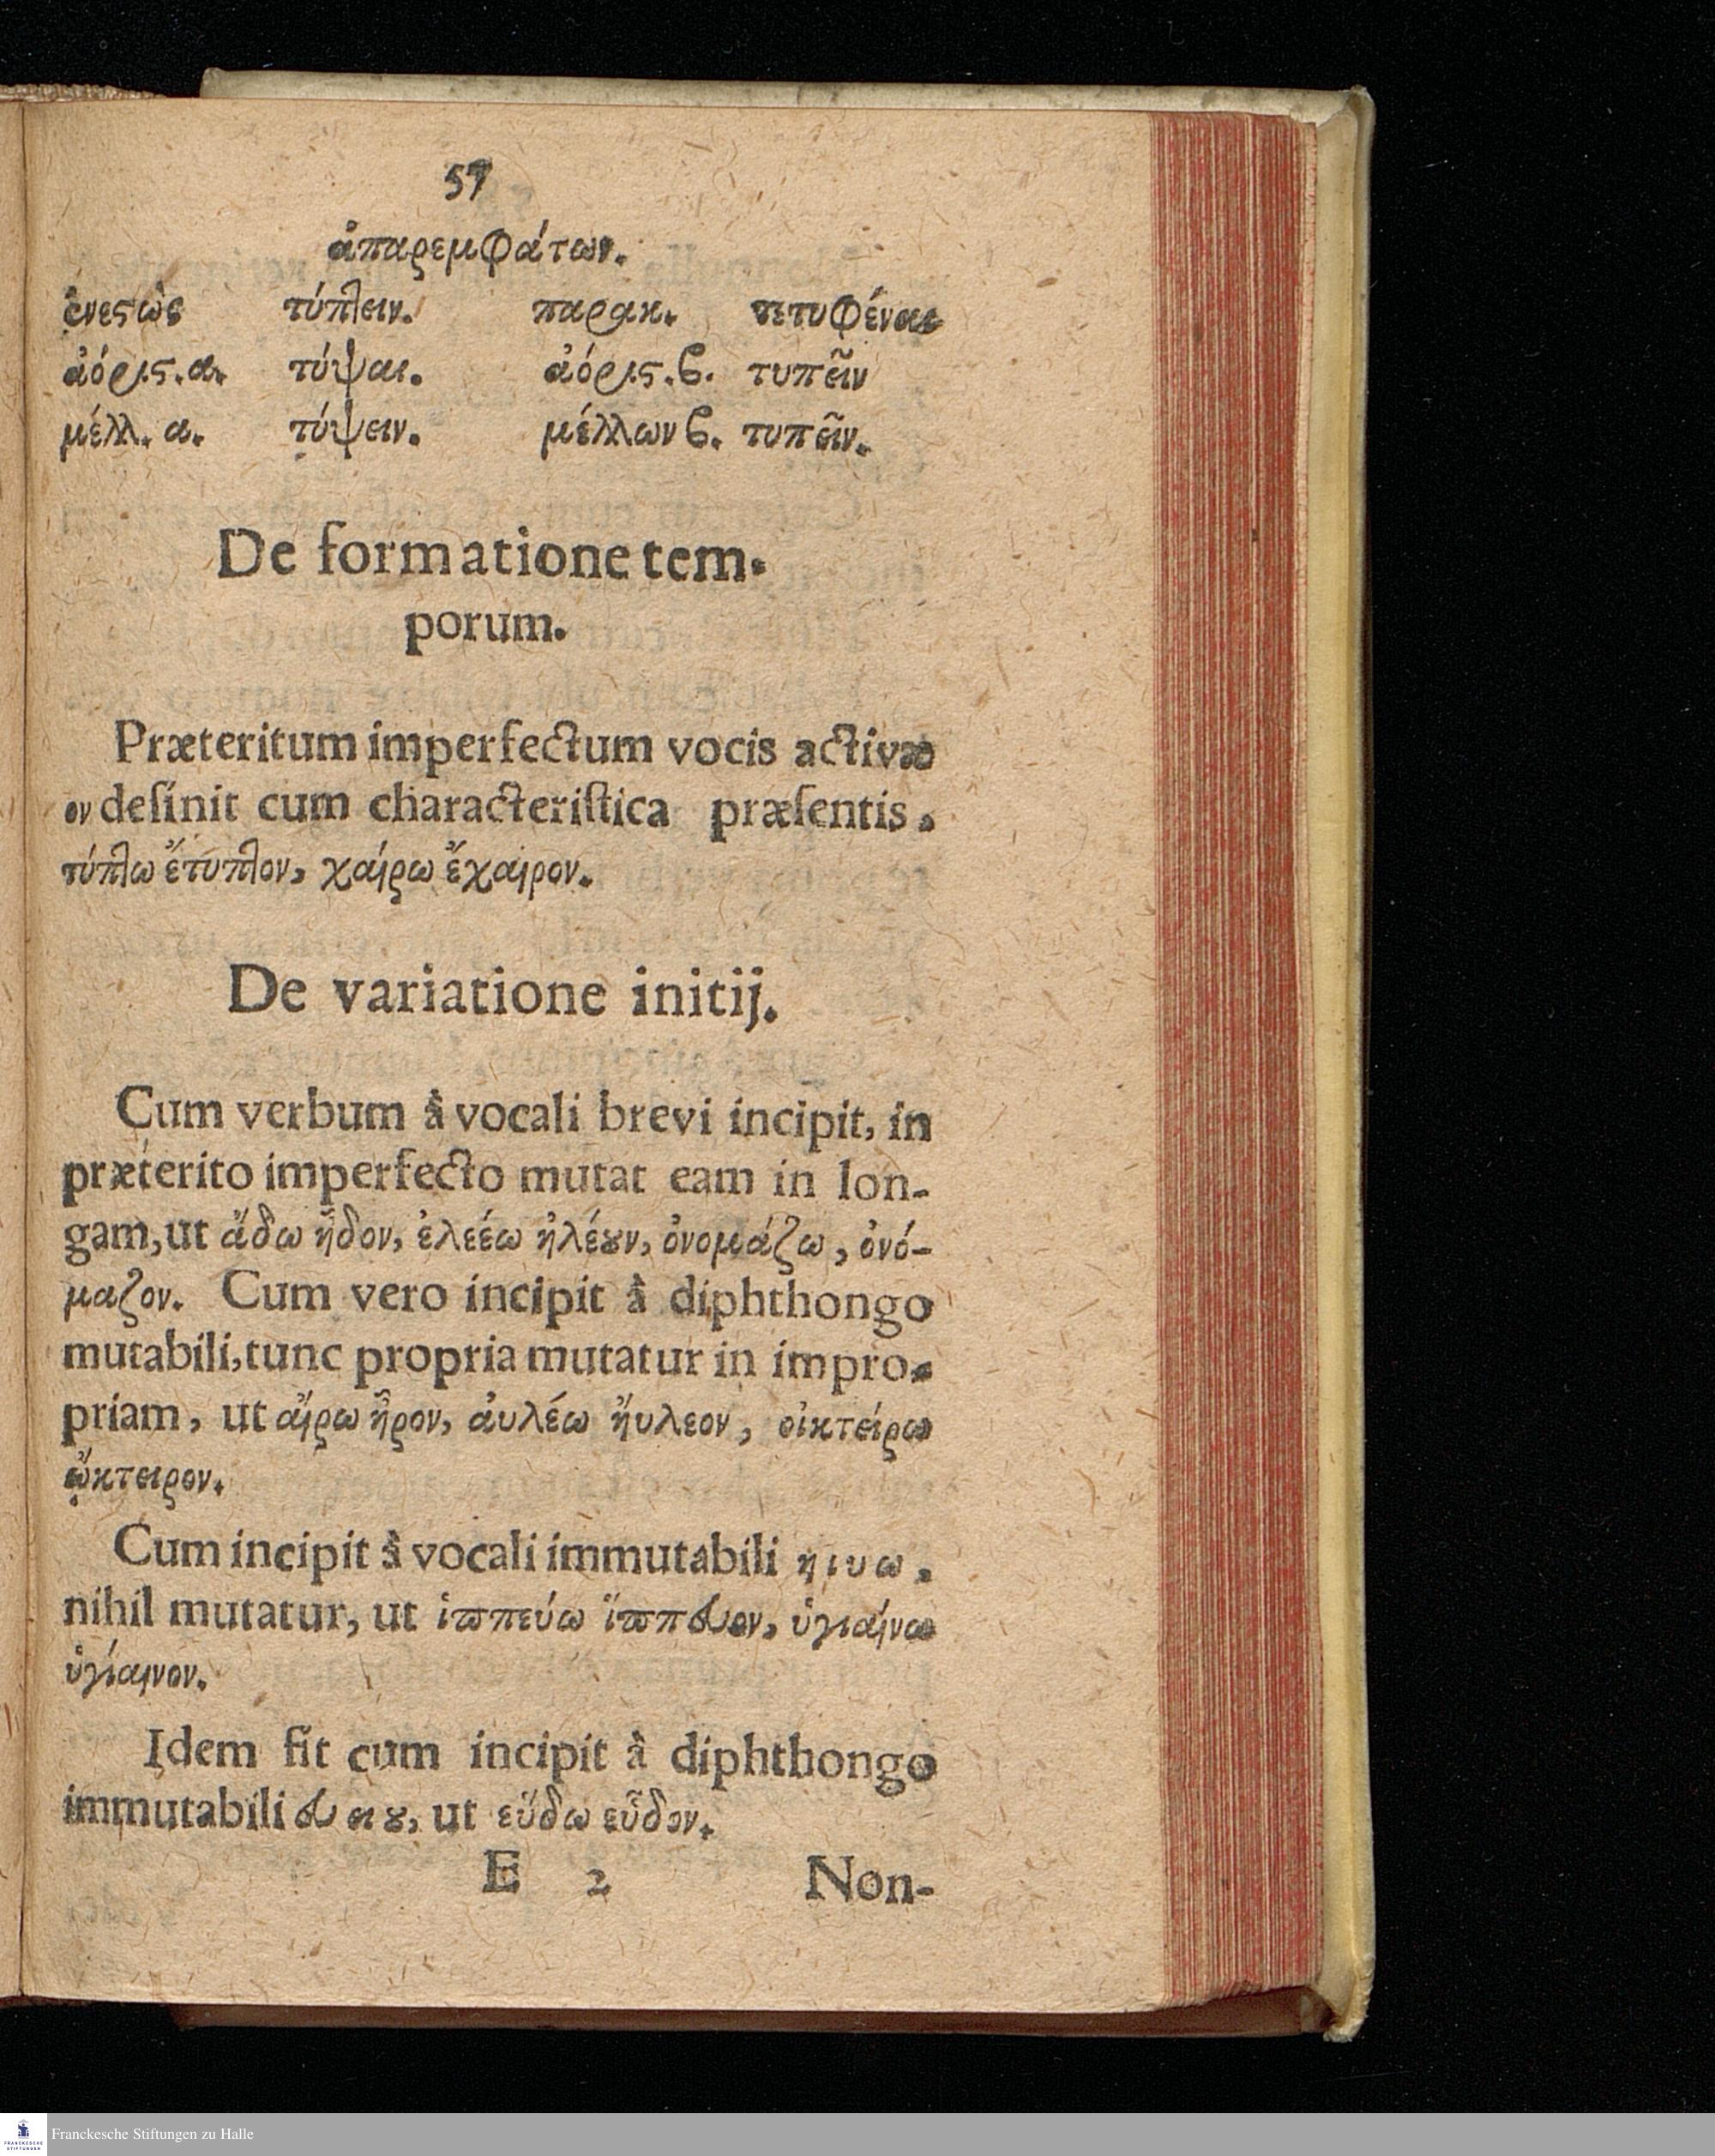 57
ἀπαρεμφάτων.
ἐνεϛὼς τύπτειν. παρακ. τετυφέναι
ἀόριϛ. α. τύψαι. ἀόριϛ. ϐ. τυπεῖν
μέλλ. α. τύψειν. μέλλων ϐ. τυπεῖν.
De formatione tem-
porum.
Præteritum imperfectum vocis activæ
ον deſinit cum characteriſtica præſentis,
τύπτω ἔτυπτον, χαίρω ἔχαιρον.
De variatione initij.
Cum verbum â vocali brevi incipit, in
præterito imperfecto mutat eam in lon-
gam, ut ἄδω ἦδον, ἐλεέω ἠλέȣν, ὀνομάζω, ὀνό-
μαζον. Cum vero incipit â diphthongo
mutabili, tunc propria mutatur in impro-
priam, ut αἴρω ἦρον, ἀυλέω ἤυλεον, οἰκτείρω
ᾤκτειρον.
Cum incipit â vocali immutabili η ι υ ω,
nihil mutatur, ut ἱππεύω ἵππευον, ὑγιαίνω
ὑγίαινον.
Idem fit cum incipit â diphthongo
immutabili ευ ει ȣ, ut εὕδω εὗδον.
E 2 Non-
Franckesche Stiftungen zu Halle
FRANCKESCHE
STIFTUNGEN